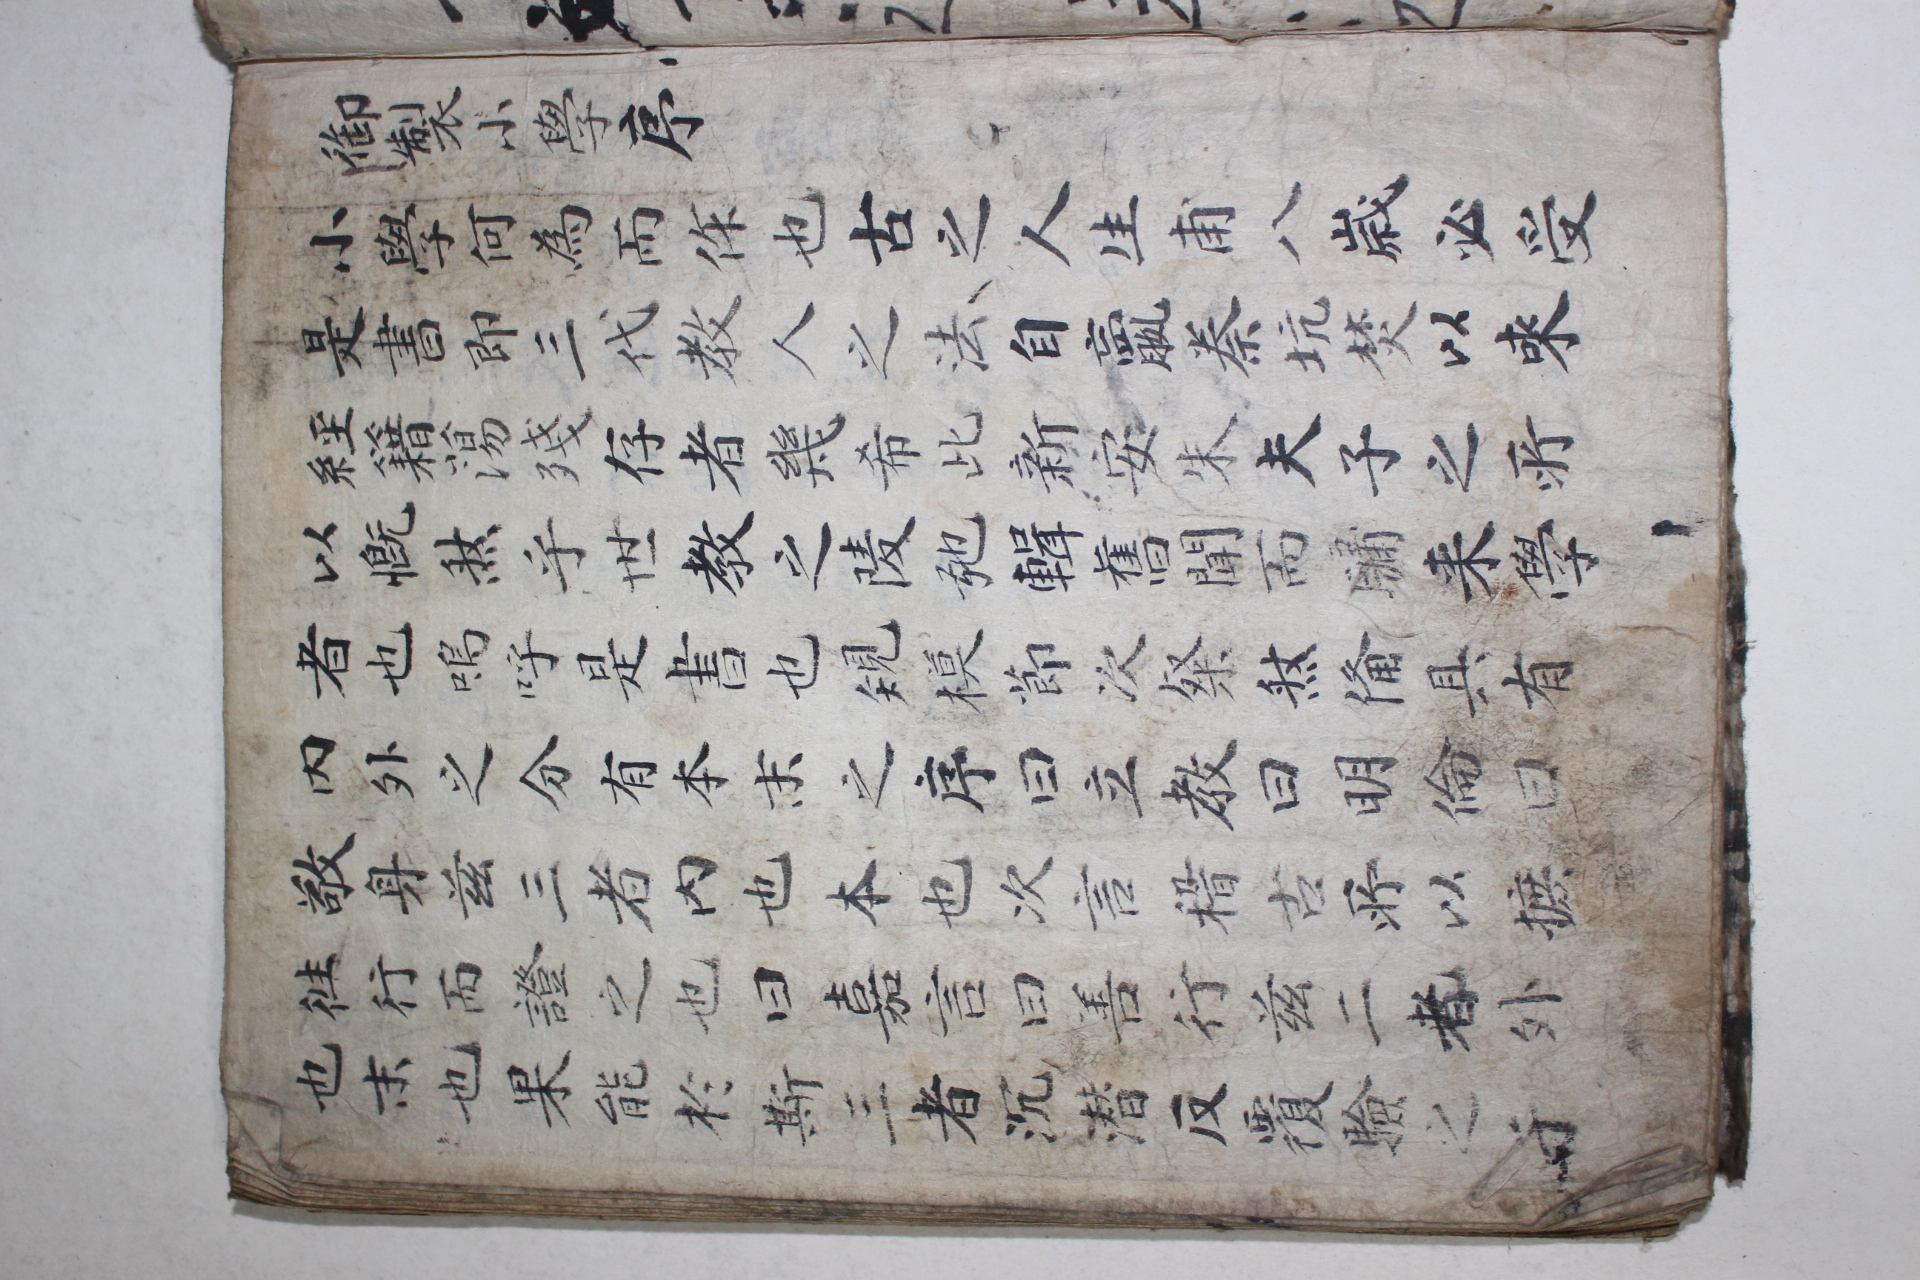 御製小學序
小學何為而作也古之人生甫八歲必受
是書即三代教人之法自嬴秦坑焚以來
經籍蕩殘存者幾希此新安朱夫子之所
以慨然乎世教之陵弛輯舊聞而牖来學
者也嗚呼是書也規模節次粲然備具有
内外之分有本末之序曰立教曰明倫曰
敬身兹三者内也本也次言稽古所以摭
徃行而證之也曰嘉言曰善行兹二者外
也末也果能於斯三者沉潛反覆驗之于